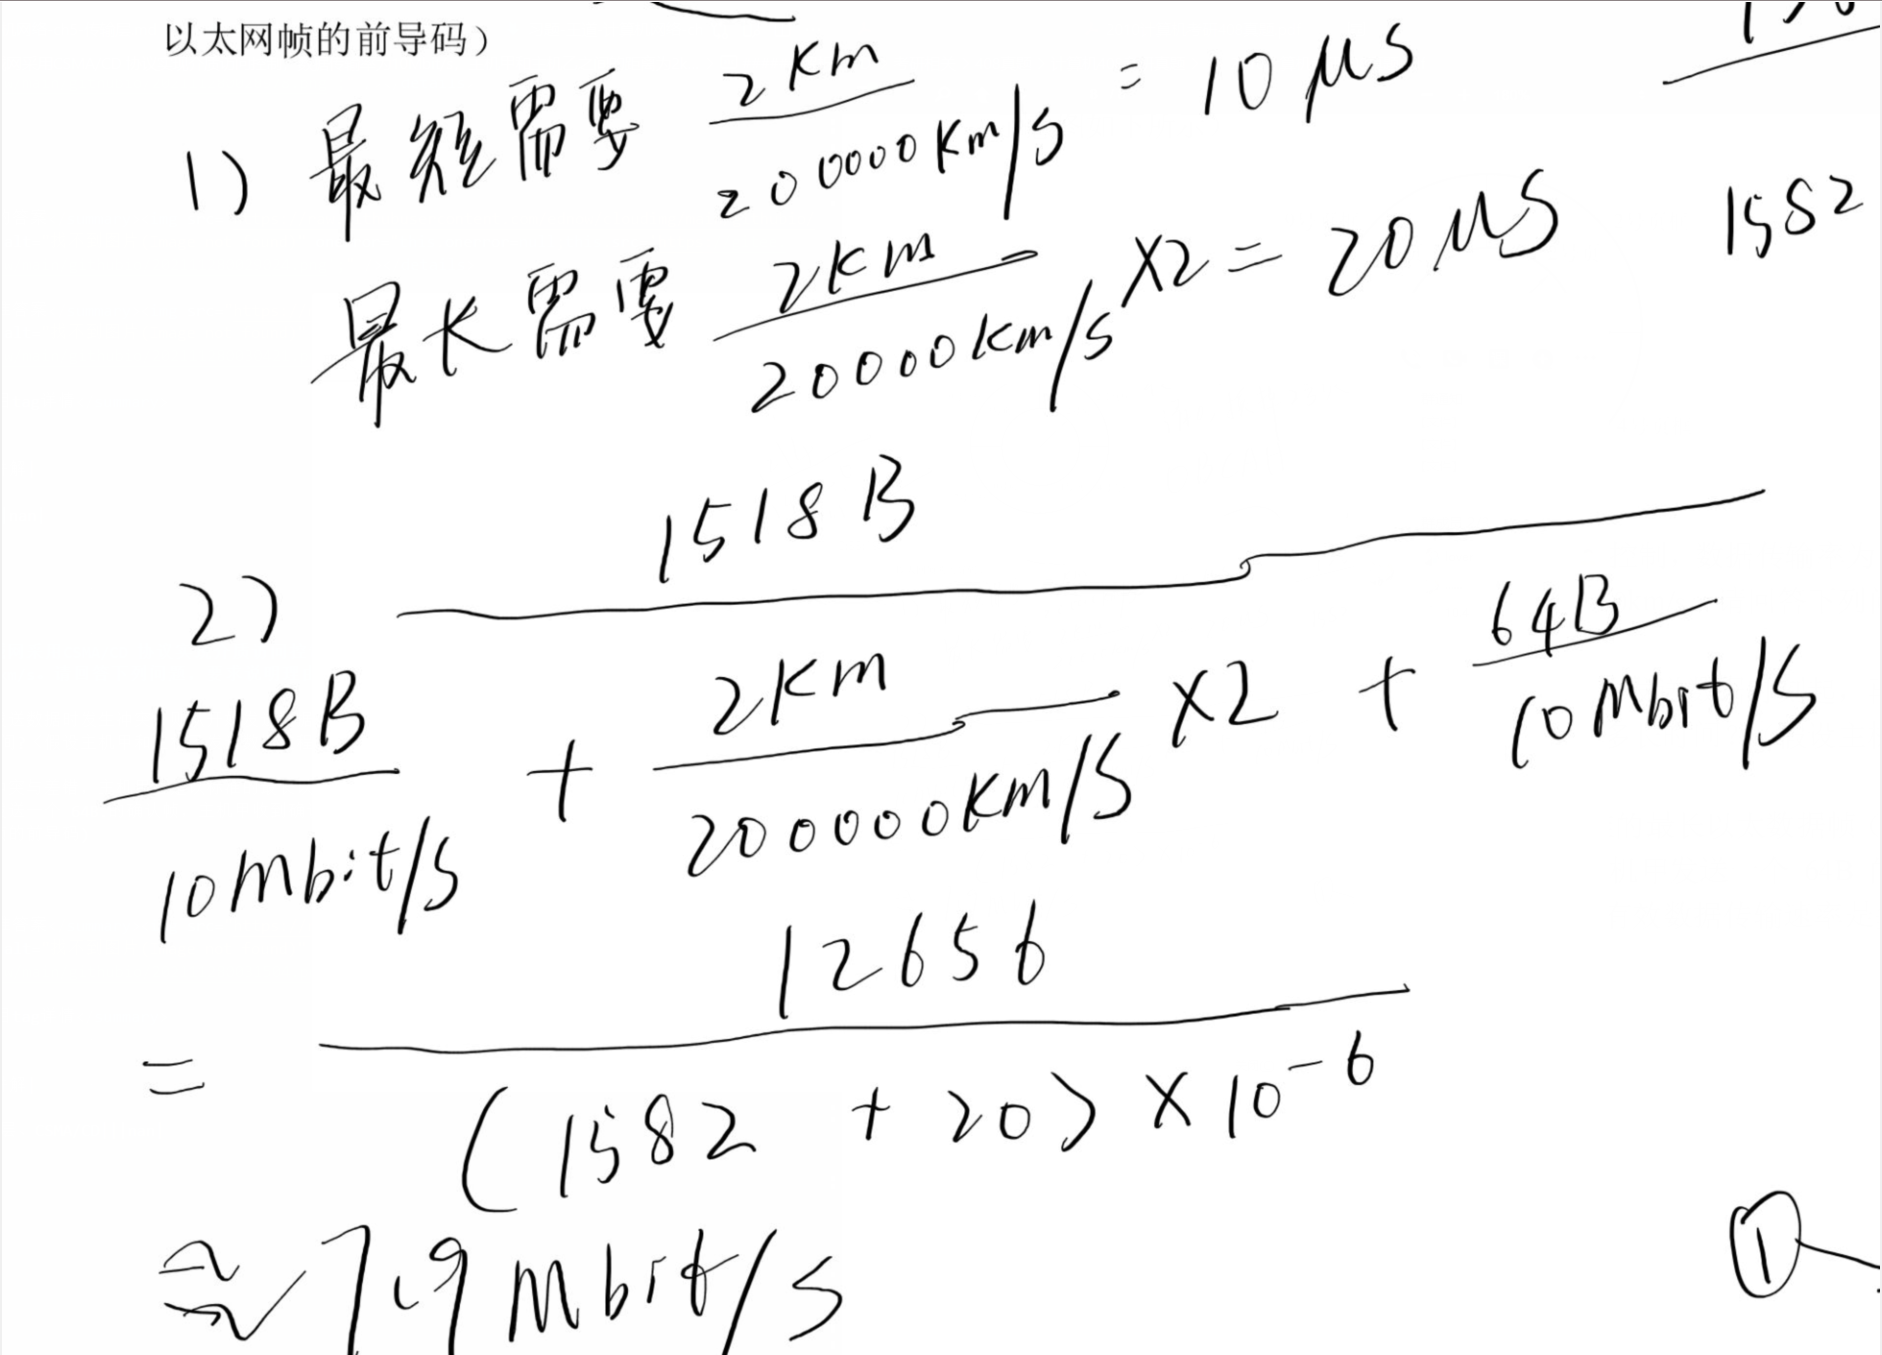 以太网帧的前导码）
1) 最短需要 2Km / 200000Km/s = 10 μs
最长需要 2Km / 20000Km/s ×2 = 20 μs
1582
2) 1518B
1518B / 10Mbit/s + 2Km / 200000Km/s ×2 + 64B / 10Mbit/s
= 12656
(1582 + 20) × 10⁻⁶
≈ 7.9 Mbit/s
①